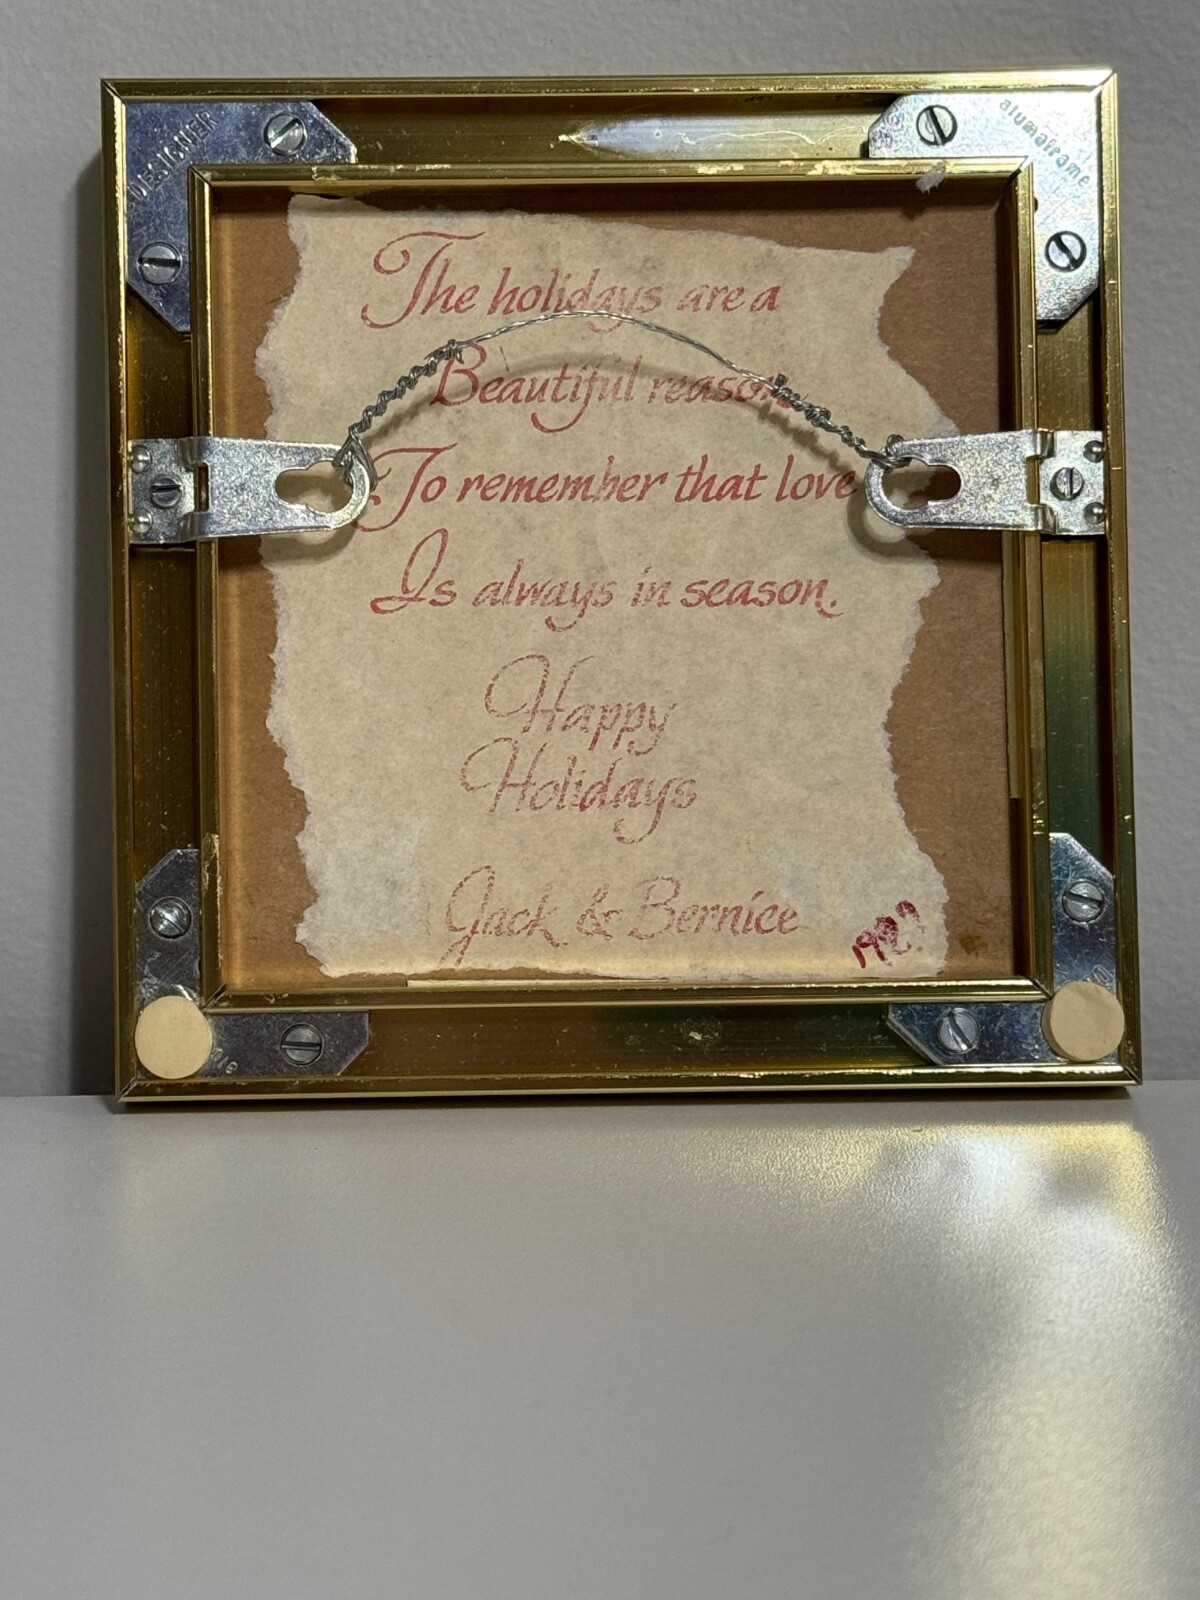 DESIGNER
alumaframe
The holidays are a
Beautiful reason
To remember that love
Is always in season.
Happy
Holidays
Jack & Bernice